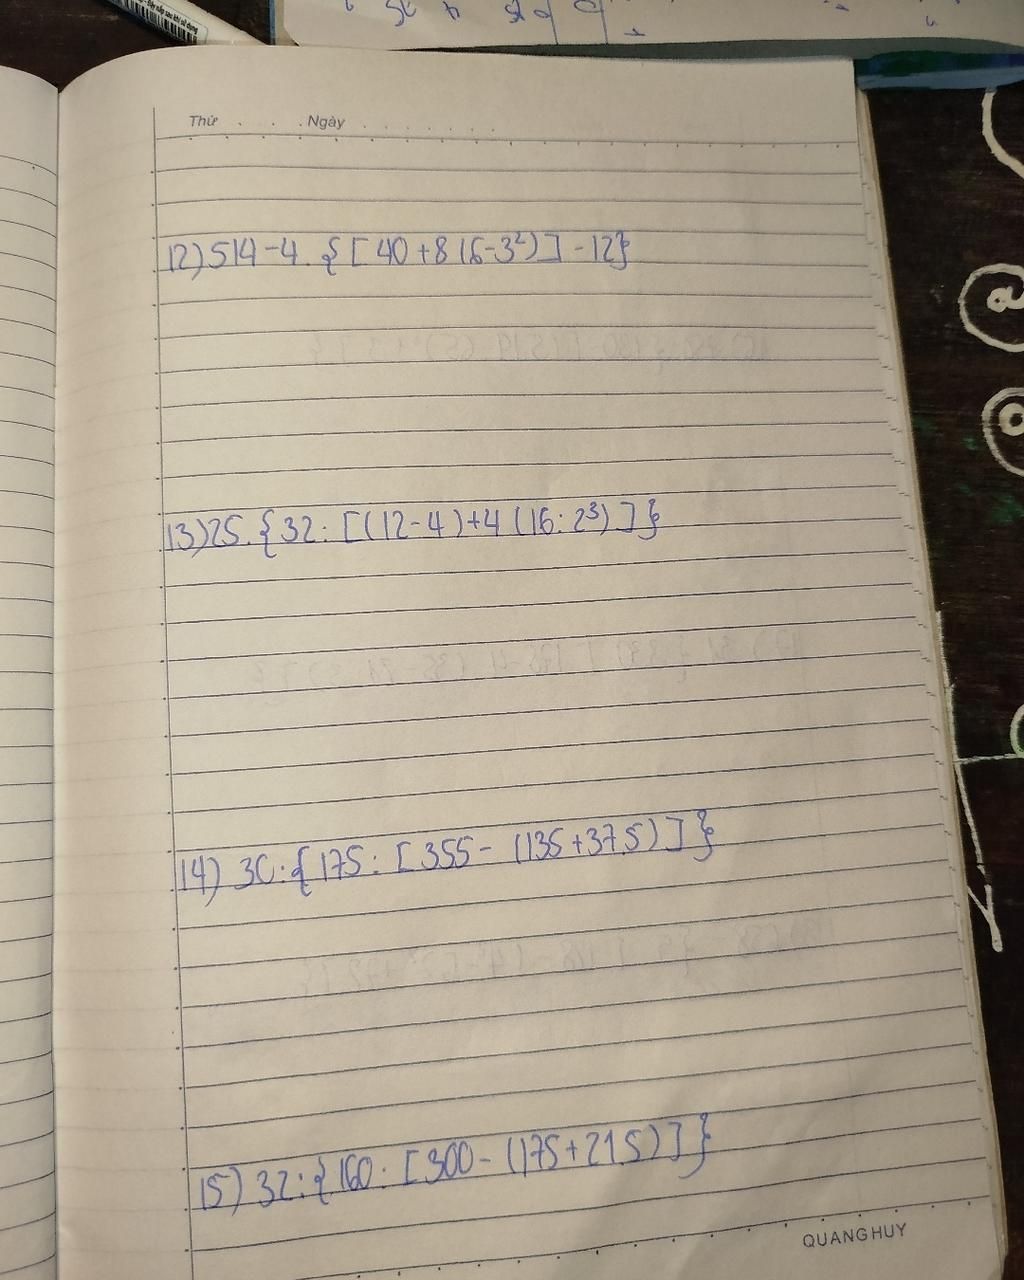 Thứ . . . . Ngày . . . . . . .
12) 514 - 4. { [ 40 + 8 (6 - 3²) ] - 12}
13) 25. { 32 : [ (12 - 4) + 4 (16 : 2³) ] }
14) 30 : { 175 : [ 355 - (135 + 37.5) ] }
15) 32 : { 160 : [ 300 - (175 + 21.5) ] }
QUANG HUY